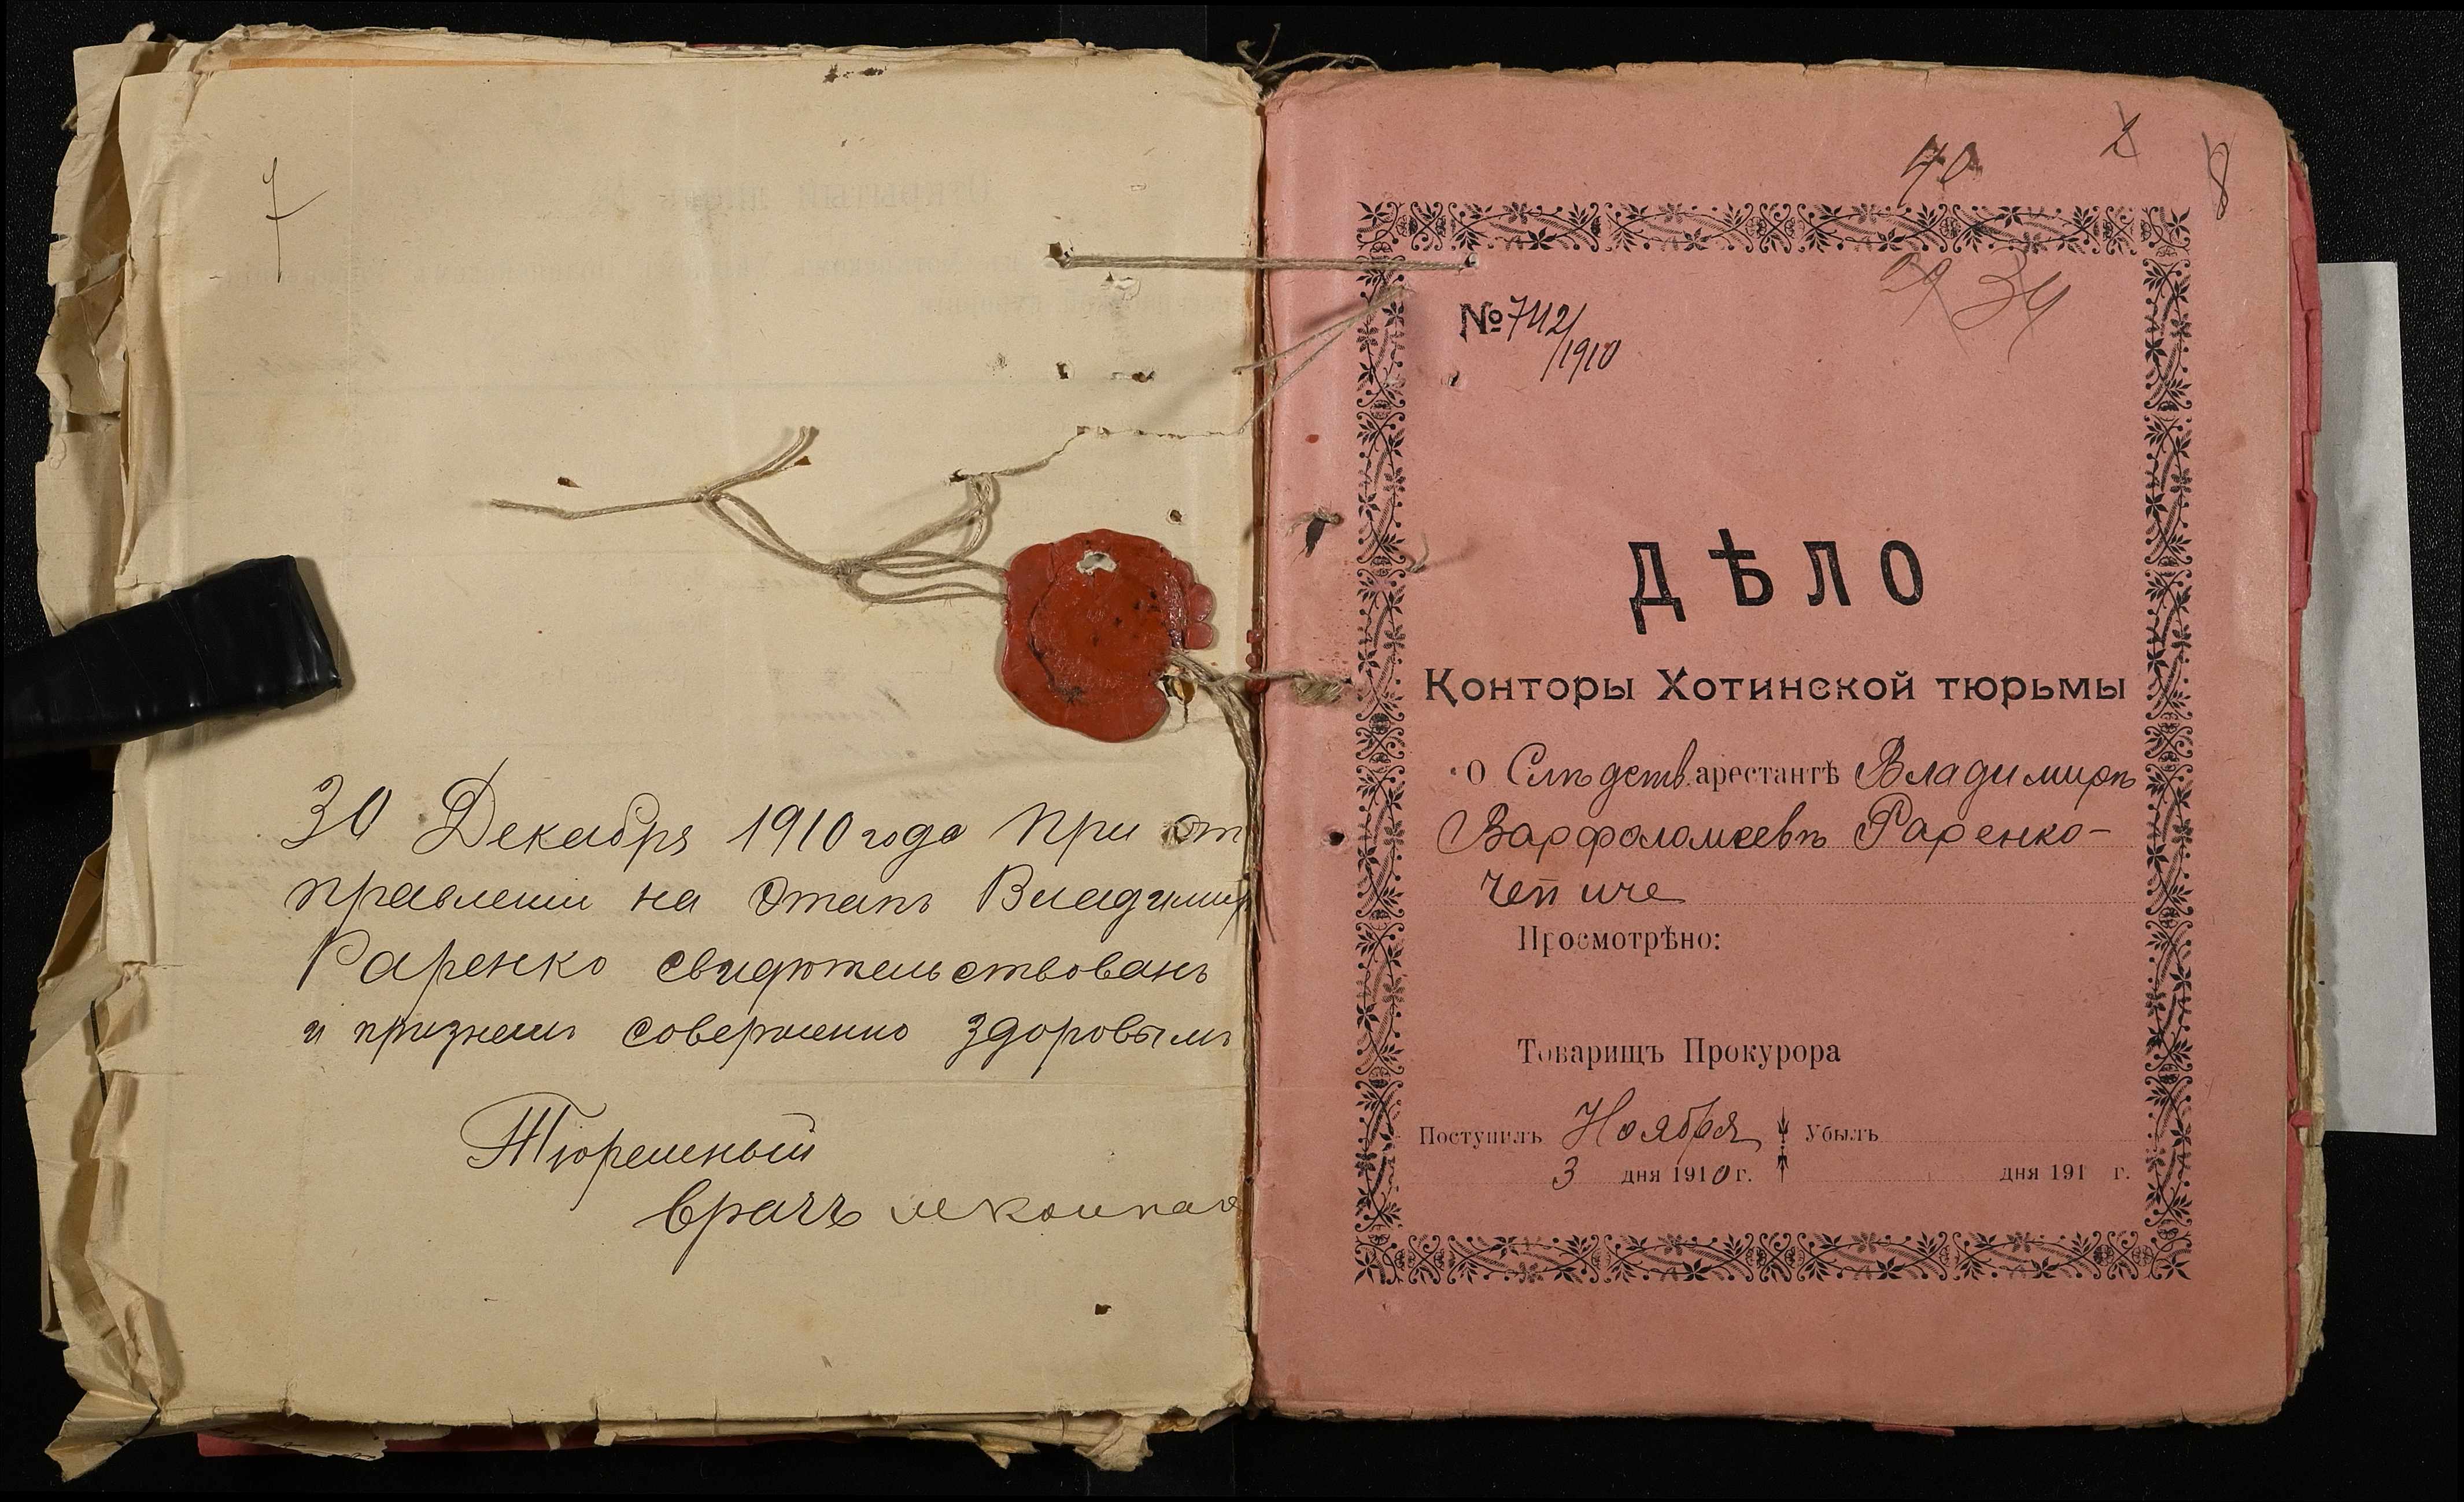 7
30 Декабря 1910 года при от
правлении на этапъ Владимир
Раренко свидѣтельствованъ
и признанъ совершенно здоровымъ
Тюремный
врачъ
40
8
34
№ 742/1910
ДѢЛО
Конторы Хотинской тюрьмы
о Слѣдств. арестантѣ Владимирѣ
Варфоломеевѣ Раренко-
Чепиге
Просмотрѣно:
Товарищъ Прокурора
Поступилъ Ноября Убылъ
3 дня 1910 г. дня 191 г.